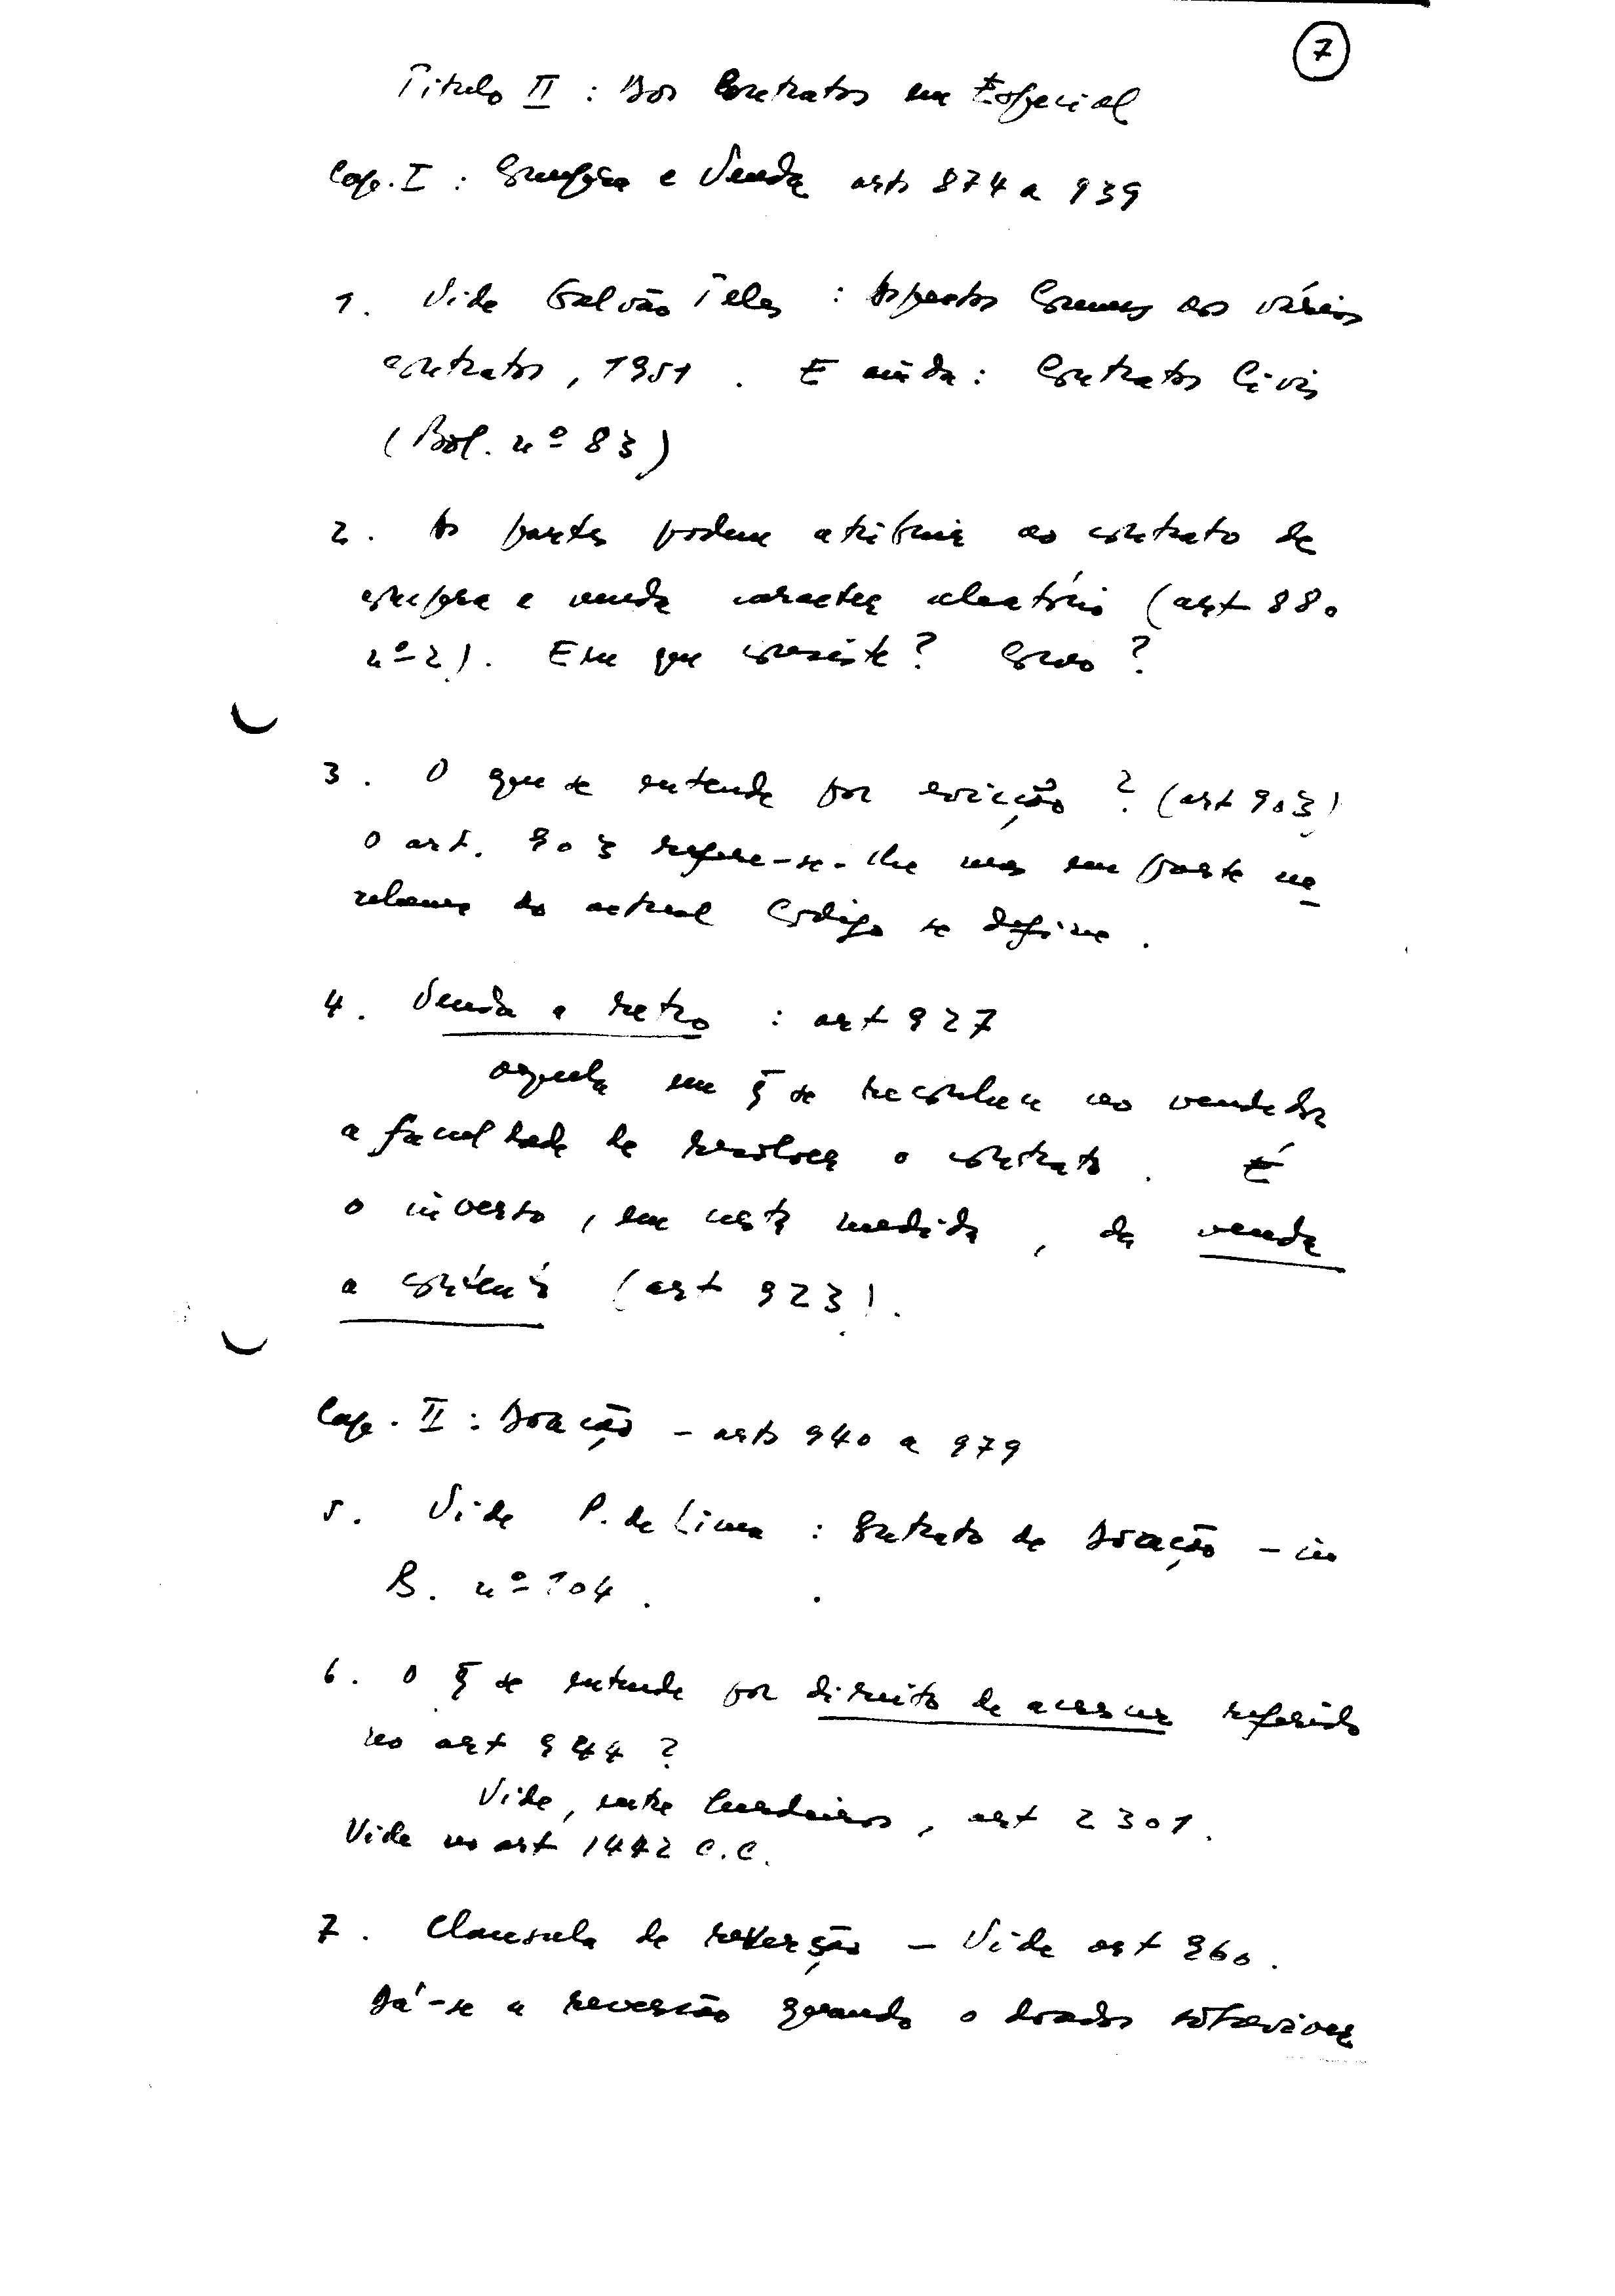 7
Titulo II : Dos Contratos em Especial
Cap. I : Compra e Venda arts 874 a 939
1. Vide Galvão Teles : Aspectos Comuns aos vários
contratos, 1951. E ainda: Contratos Civis
(Bol. nº 83)
2. As partes podem atribuir ao contrato de
compra e venda caracter aleatório (art 880
nº 2). Em que consiste? Como?
3. O que se entende por evicção? (art 903)
O art. 903 refere-se-lhe mas em parte
do actual Codigo se define.
4. Venda a retro : art 927
aquela em q̃ se reconhece ao vendedor
a faculdade de resolver o contrato. É
o inverso, em certa medida, da venda
a contento (art 923).
Cap. II : Doação - arts 940 a 979
5. Vide P. de Lima : Contrato de Doação - in
B. nº 104.
6. O q̃ se entende por direito de acrescer referido
no art 944 ?
Vide, entre herdeiros, art 2301.
Vide no art 1442 C.C.
7. Clausula de reversão - Vide art 960.
Dá-se a reversão quando o doador sobreviver